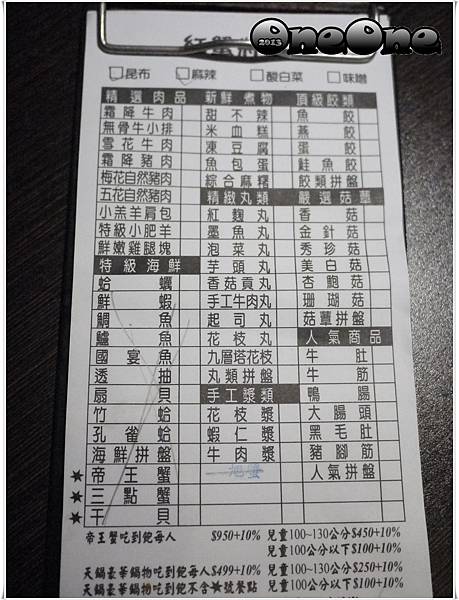 OneOne
2013
紅蟹
昆布 麻辣 酸白菜 味噌
精選肉品 新鮮煮物 頂級餃類
霜降牛肉 甜不辣 魚餃
無骨牛小排 米血糕 燕餃
雪花牛肉 凍豆腐 蛋餃
霜降豬肉 魚包蛋 鮭魚餃
梅花自然豬肉 綜合麻糬 餃類拼盤
五花自然豬肉 精緻丸類 嚴選菇蕈
小羔羊肩包 紅麴丸 香菇
特級小肥羊 墨魚丸 金針菇
鮮嫩雞腿塊 泡菜丸 秀珍菇
特級海鮮 芋頭丸 美白菇
蛤蠣 香菇貢丸 杏鮑菇
鮮蝦 手工牛肉丸 珊瑚菇
鯛魚 起司丸 菇蕈拼盤
鱸魚 花枝丸 人氣商品
國宴魚 九層塔花枝 牛肚
透抽 丸類拼盤 牛筋
扇貝 手工漿類 鴨腸
竹蛤 花枝漿 大腸頭
孔雀蛤 蝦仁漿 黑毛肚
海鮮拼盤 牛肉漿 豬腳筋
★帝王蟹 人氣拼盤
★三點蟹
★干貝
帝王蟹吃到飽每人 $950+10% 兒童100~130公分$450+10%
兒童100公分以下$100+10%
天鍋豪華鍋物吃到飽每人$499+10% 兒童100~130公分$250+10%
天鍋豪華鍋物吃到飽不含★號餐點 兒童100公分以下$100+10%